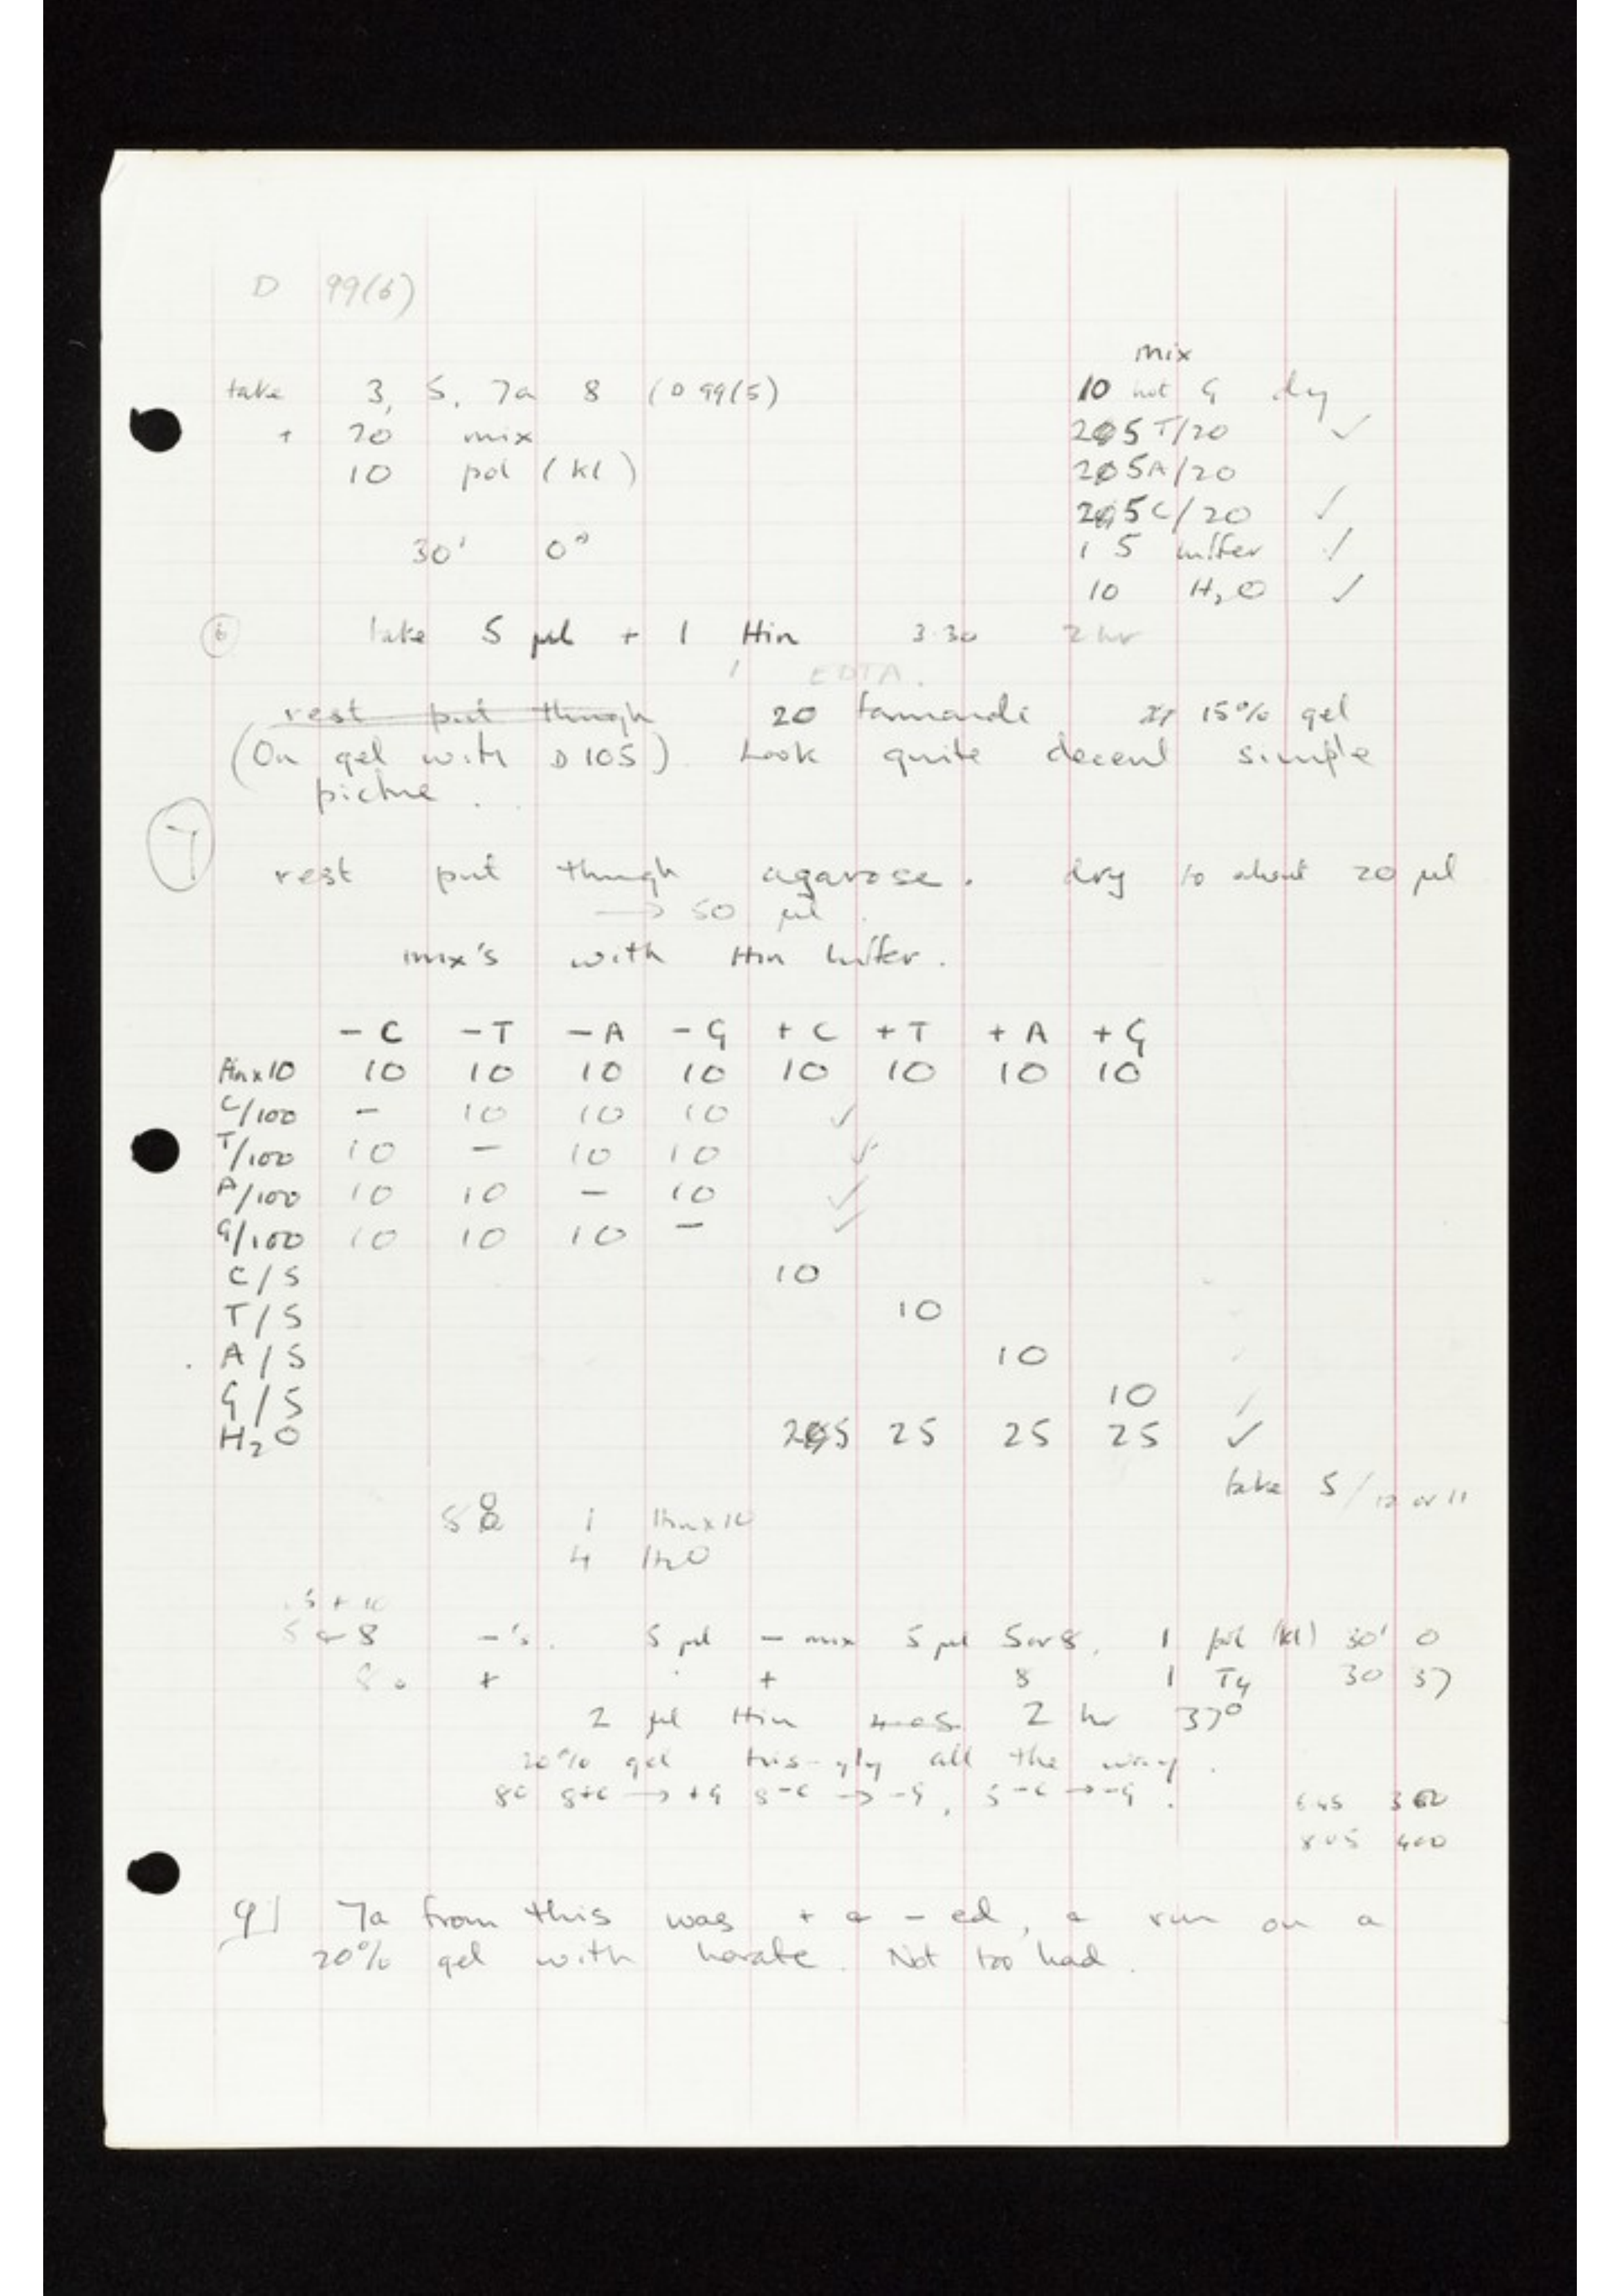 D 99(6)
mix
take 3, 5, 7a 8 (D 99(5) 10 hot G dry
+ 20 mix 25 T/20 ✓
10 pol (kl) 25A/20
25C/20 ✓
30' 0° 15 buffer ✓
10 H2O ✓
6 take 5 µl + 1 Hin 3.30 2 hr
1 EDTA.
rest put though 20 formamide 15% gel
(On gel with D 105) Look quite decent simple
picture.
7
rest put though agarose. dry to about 20 µl
→ 50 µl.
mix's with Hin buffer.
-C -T -A -G +C +T +A +G
Hin x10 10 10 10 10 10 10 10 10
C/100 - 10 10 10 ✓
T/100 10 - 10 10 ✓
A/100 10 10 - 10 ✓
G/100 10 10 10 - ✓
C/5 10
T/5 10
A/5 10
G/5 10
H2O 25 25 25 25 ✓
take 5/12 or 11
1 Hin x10
4 H2O
5 + 8 -'s. 5 µl - mix 5 µl 5 or 8, 1 pol (kl) 30' 0
+ + 8 1 T4 30 37
2 µl Hin 4.05 2 hr 37°
20% gel tris-gly all the way.
8+C → +G 8-C → -G, 5-C → -G.
400
9] 7a from this was + & - ed, & run on a
20% gel with borate. Not too bad.